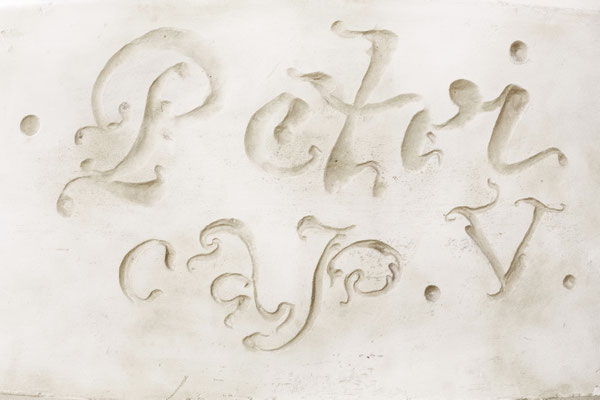 · Petri
cap. V.